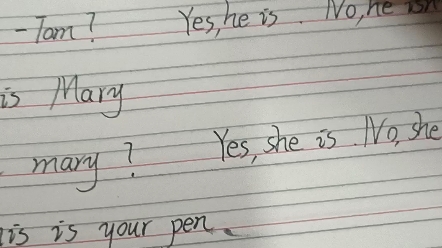 -Tom? Yes, he is. No, he isn
is Mary
mary? Yes, she is. No, she
is is your pen.